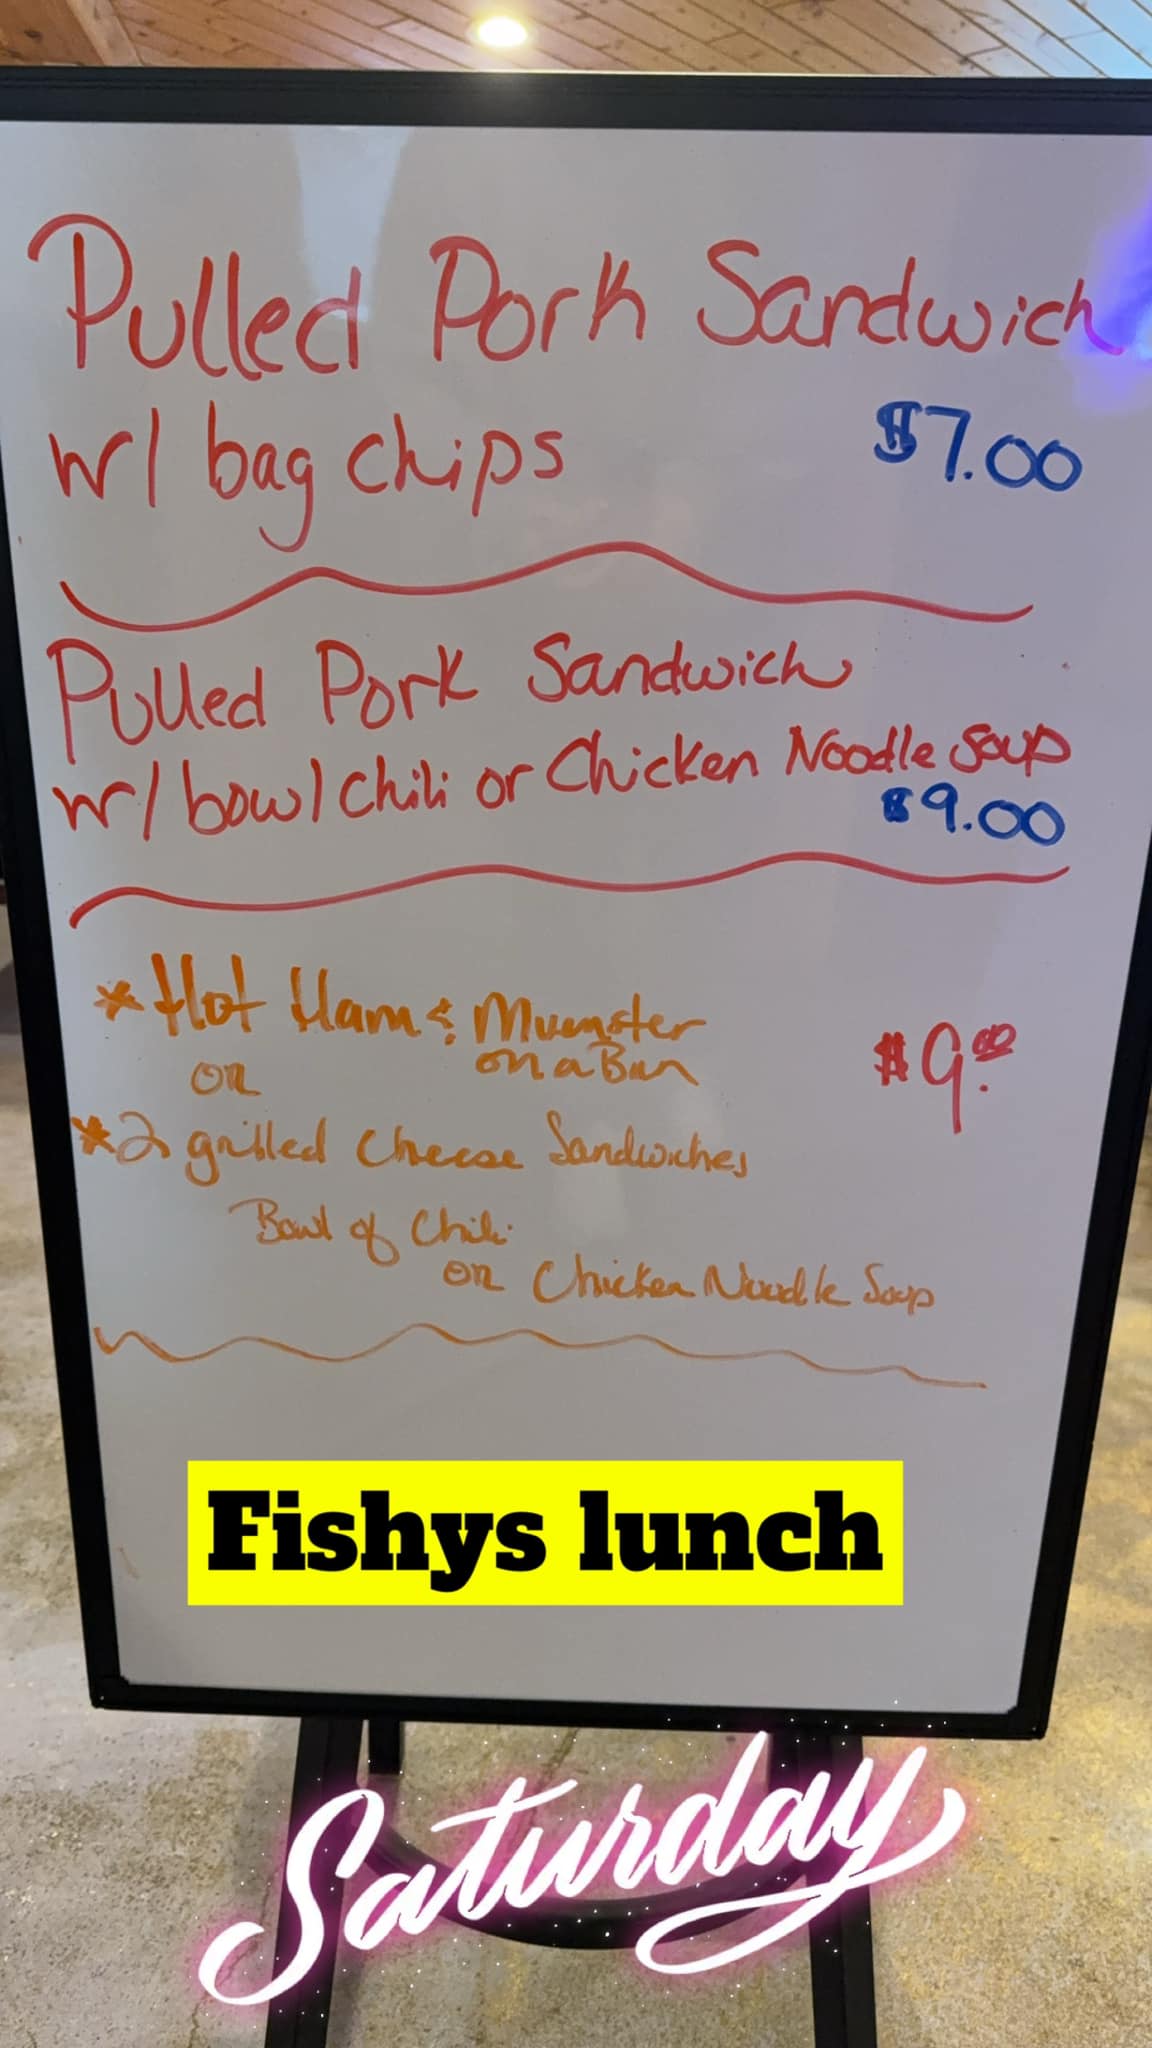 Pulled Pork Sandwich
w/ bag chips $7.00
Pulled Pork Sandwich
w/ bowl chili or Chicken Noodle Soup
$9.00
* Hot Ham & Muenster
or on a Bun $9.00
* 2 grilled Cheese Sandwiches
Bowl of Chili
or Chicken Noodle Soup
Fishys lunch
Saturday